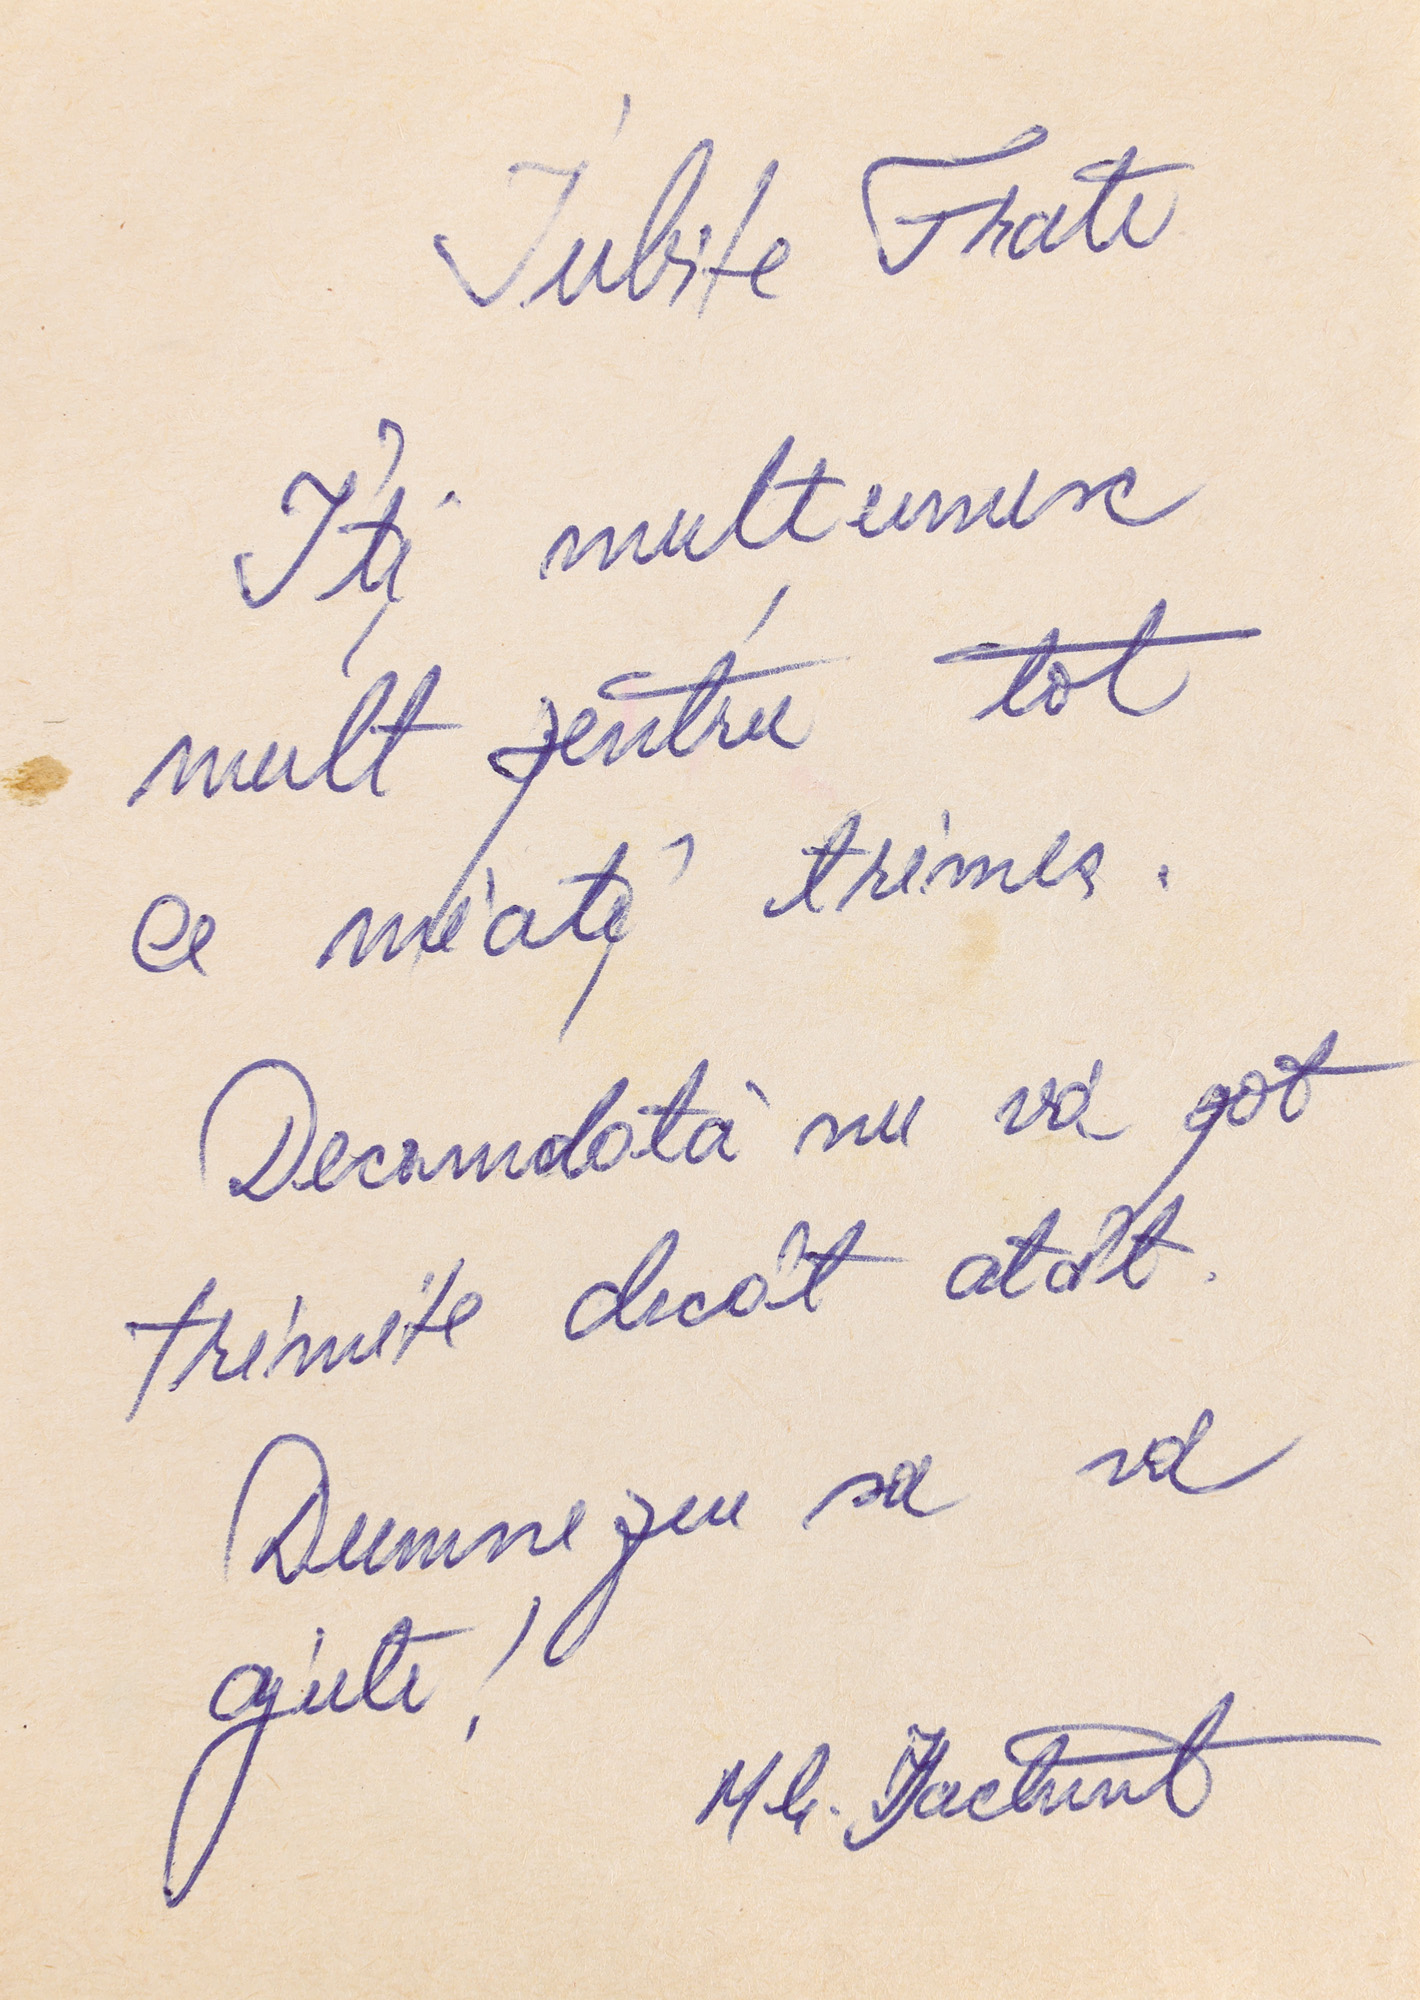 Iubite Frate
Îți mulțumesc
mult pentru tot
ce miați trimes.
Decamdată nu vă pot
trimite decât atât.
Dumnezeu sa vă
ajute!